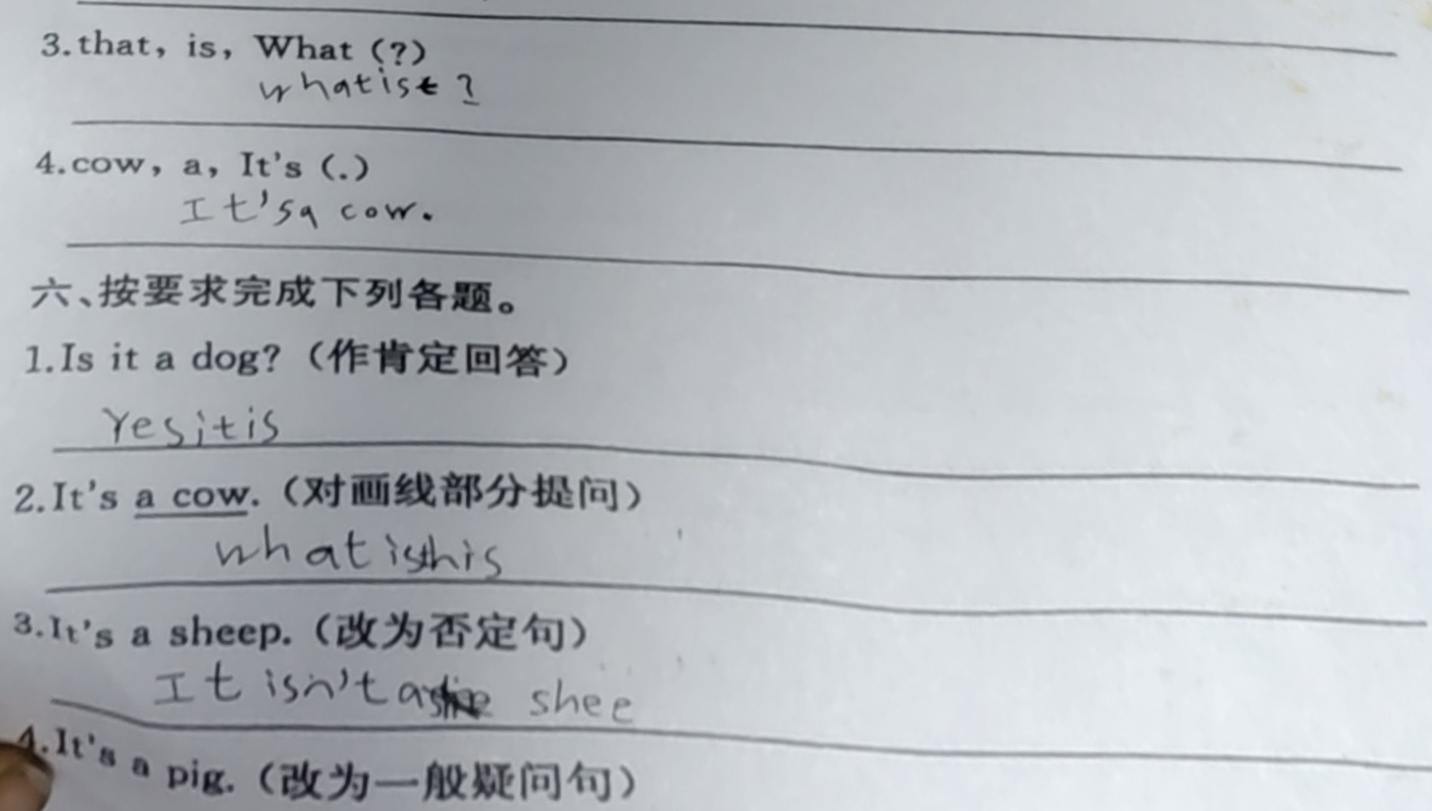 3.that, is, What (?)
whatist?
4.cow, a, It's (.)
It'sa cow.
六、按要求完成下列各题。
1.Is it a dog?（作肯定回答）
Yesitis
2.It's a cow.（对画线部分提问）
whatisthis
3.It's a sheep.（改为否定句）
It isn't a shee
4.It's a pig.（改为一般疑问句）